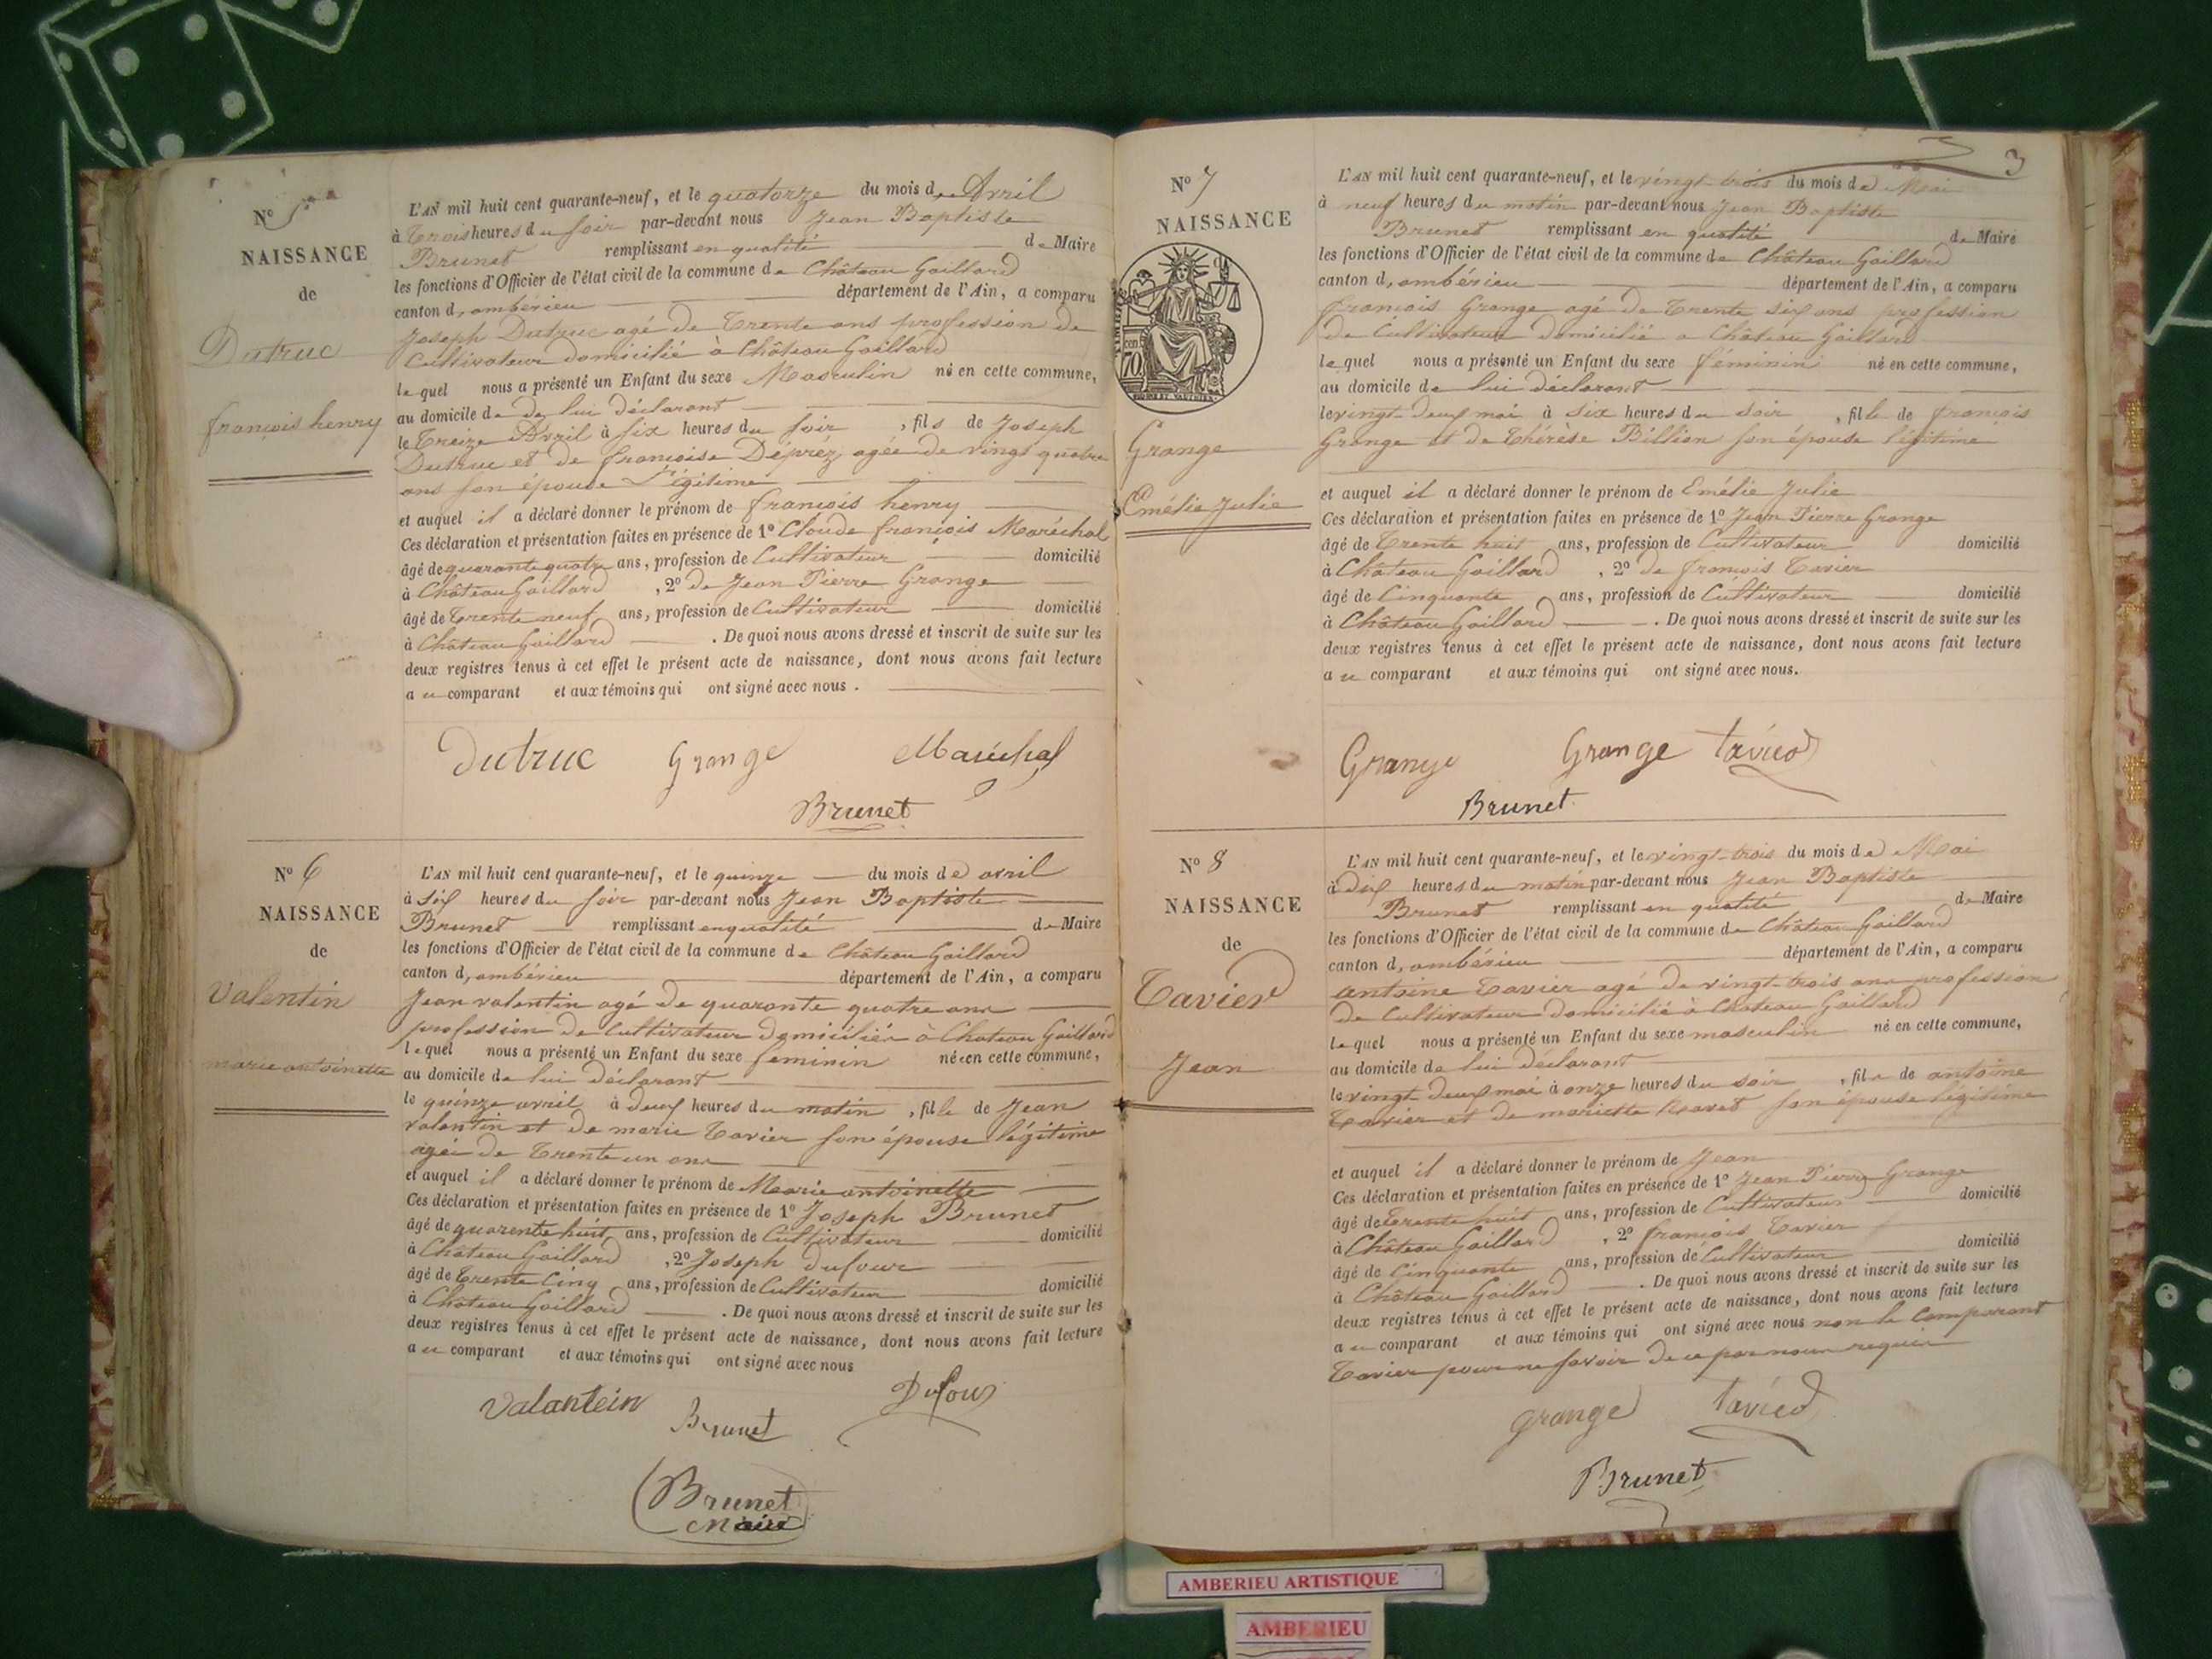 Nº 5
NAISSANCE
de
Dutruc
françois henry
L'AN mil huit cent quarante-neuf, et le quatorze du mois de Avril
à trois heures du soir par-devant nous Jean Baptiste
Brunet remplissant en qualité de Maire
les fonctions d'Officier de l'état civil de la commune de Château Gaillard
canton d, ambérieu département de l'Ain, a comparu
Joseph Dutruc agé de trente ans profession de
Cultivateur domicilié à Château Gaillard
lequel nous a présenté un Enfant du sexe Masculin né en cette commune,
au domicile de de lui déclarant
le treize Avril à six heures du soir, fils de Joseph
Dutruc et de françoise Dépréz agée de vingt quatre
ans son épouse légitime
et auquel il a déclaré donner le prénom de françois henry
Ces déclaration et présentation faites en présence de 1º Claude françois Maréchal
âgé de quarante quatre ans, profession de Cultivateur domicilié
à Château Gaillard, 2º de Jean Pierre Grange
âgé de trente neuf ans, profession de Cultivateur domicilié
à Château Gaillard . De quoi nous avons dressé et inscrit de suite sur les
deux registres tenus à cet effet le présent acte de naissance, dont nous avons fait lecture
au comparant et aux témoins qui ont signé avec nous.
Dutruc Grange Maréchal
Brunet
Nº 6
NAISSANCE
de
Valentin
marie antoinette
L'AN mil huit cent quarante-neuf, et le quinze du mois de avril
à six heures du soir par-devant nous Jean Baptiste
Brunet remplissant en qualité de Maire
les fonctions d'Officier de l'état civil de la commune de Château Gaillard
canton d, ambérieu département de l'Ain, a comparu
Jean valentin agé de quarante quatre ans
profession de Cultivateur domiciliér à Chateau Gaillard
lequel nous a présenté un Enfant du sexe feminin née en cette commune,
au domicile de lui déclarant
le quinze avril à deux heures du matin, fille de Jean
valentin et de marie Tavier son épouse légitime
agée de trente un ans
et auquel il a déclaré donner le prénom de Marie antoinette
Ces déclaration et présentation faites en présence de 1º Joseph Brunet
âgé de quarente huit ans, profession de Cultivateur domicilié
à Château Gaillard, 2º Joseph dufour
âgé de trente Cinq ans, profession de Cultivateur domicilié
à Château Gaillard . De quoi nous avons dressé et inscrit de suite sur les
deux registres tenus à cet effet le présent acte de naissance, dont nous avons fait lecture
au comparant et aux témoins qui ont signé avec nous
Valantein Brunet Dufour
Brunet
Maire
3
Nº 7
NAISSANCE
Grange
Emélie Julie
L'AN mil huit cent quarante-neuf, et le vingt-trois du mois de Mai
à neuf heures du matin par-devant nous Jean Baptiste
Brunet remplissant en qualité de Maire
les fonctions d'Officier de l'état civil de la commune de Château Gaillard
canton d, ambérieu département de l'Ain, a comparu
françois Grange agé de trente six ans profession
de Cultivateur domicilié a Château Gaillard
lequel nous a présenté un Enfant du sexe féminin né en cette commune,
au domicile de lui déclarant
le vingt deux mai à six heures du soir, fille de françois
Grange et de thérèse Billion son épouse légitime
et auquel il a déclaré donner le prénom de Emélie Julie
Ces déclaration et présentation faites en présence de 1º Jean Pierre Grange
âgé de trente huit ans, profession de Cultivateur domicilié
à Château Gaillard, 2º de françois Tavier
âgé de Cinquante ans, profession de Cultivateur domicilié
à Château Gaillard . De quoi nous avons dressé et inscrit de suite sur les
deux registres tenus à cet effet le présent acte de naissance, dont nous avons fait lecture
au comparant et aux témoins qui ont signé avec nous.
Grange Grange
Brunet
Nº 8
NAISSANCE
de
Tavier
Jean
L'AN mil huit cent quarante-neuf, et le vingt-trois du mois de Mai
à dix heures du matin par-devant nous Jean Baptiste
Brunet remplissant en qualité de Maire
les fonctions d'Officier de l'état civil de la commune de Château Gaillard
canton d, ambérieu département de l'Ain, a comparu
antoine tavier agé de vingt-trois ans profession
de Cultivateur domicilié à Chateau Gaillard
lequel nous a présenté un Enfant du sexe masculin né en cette commune,
au domicile de lui déclarant
le vingt deux mai à onze heures du soir, fils de antoine
Tavier et de mariette son épouse légitime
et auquel il a déclaré donner le prénom de Jean
Ces déclaration et présentation faites en présence de 1º Jean Pierre Grange
âgé de trente huit ans, profession de Cultivateur domicilié
à Château Gaillard, 2º françois Tavier
âgé de Cinquante ans, profession de Cultivateur domicilié
à Château Gaillard . De quoi nous avons dressé et inscrit de suite sur les
deux registres tenus à cet effet le présent acte de naissance, dont nous avons fait lecture
au comparant et aux témoins qui ont signé avec nous non le Comparant
Tavier pour ne savoir de ce par nous requis
grange
Brunet
AMBERIEU ARTISTIQUE
AMBERIEU